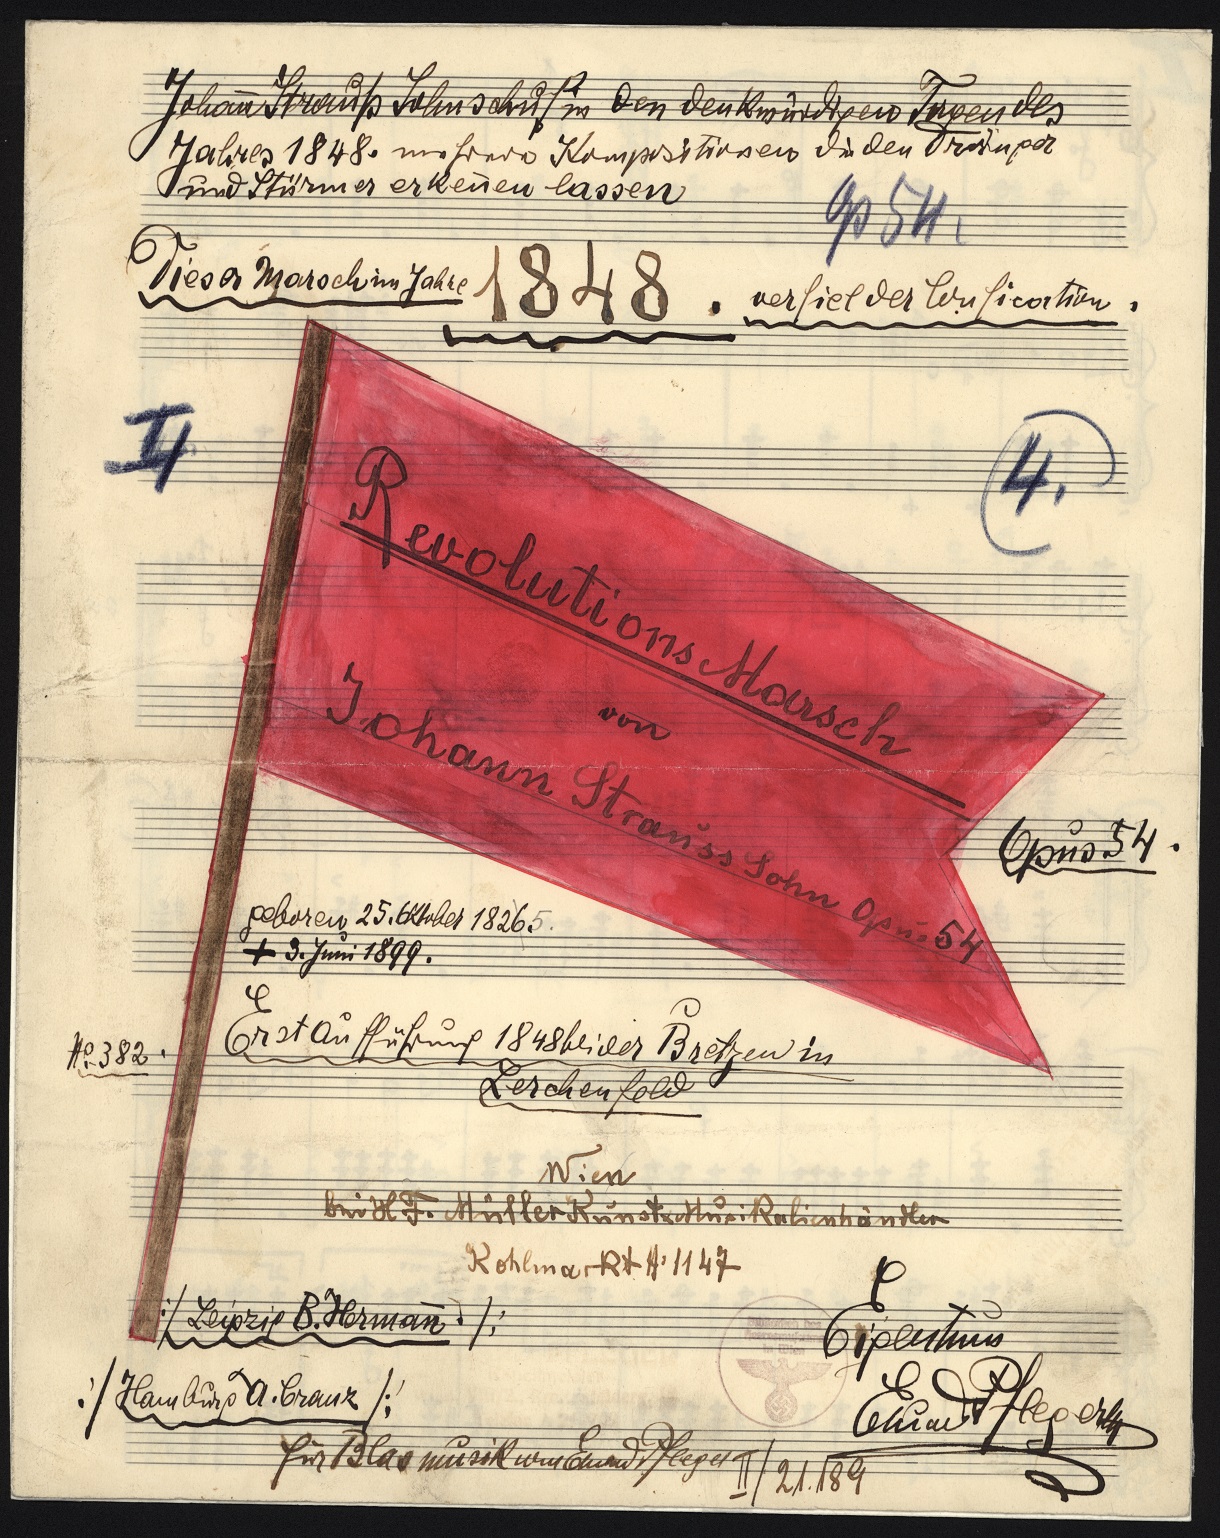 Johañ Strauß Sohn schuf in den denkwürdigen Tagen des
Jahres 1848. mehrere Kompositionen die den Dränger
und Stürmer erkeñen lassen
Op 54.
Dieser Marsch im Jahre 1848. verfiel der Confication.
II
4.
Revolutions Marsch
von
Johann Strauss Sohn Opus 54
Opus 54.
geboren 25. Oktober 18265.
+ 3. Juni 1899.
No 382.
Erstaufführung 1848 bei der Bretzen in
Lerchenfeld
Wien
bei H. F. Müller Kunst u Musikalienhändler
Kohlmarkt No 1147
:/ Leipzig B. Hermañ. /:
Eigentum
:/ Hamburg A. Cranz /:
Eduard Pfleger
für Blasmusik von Eduard Pfleger II/21.189